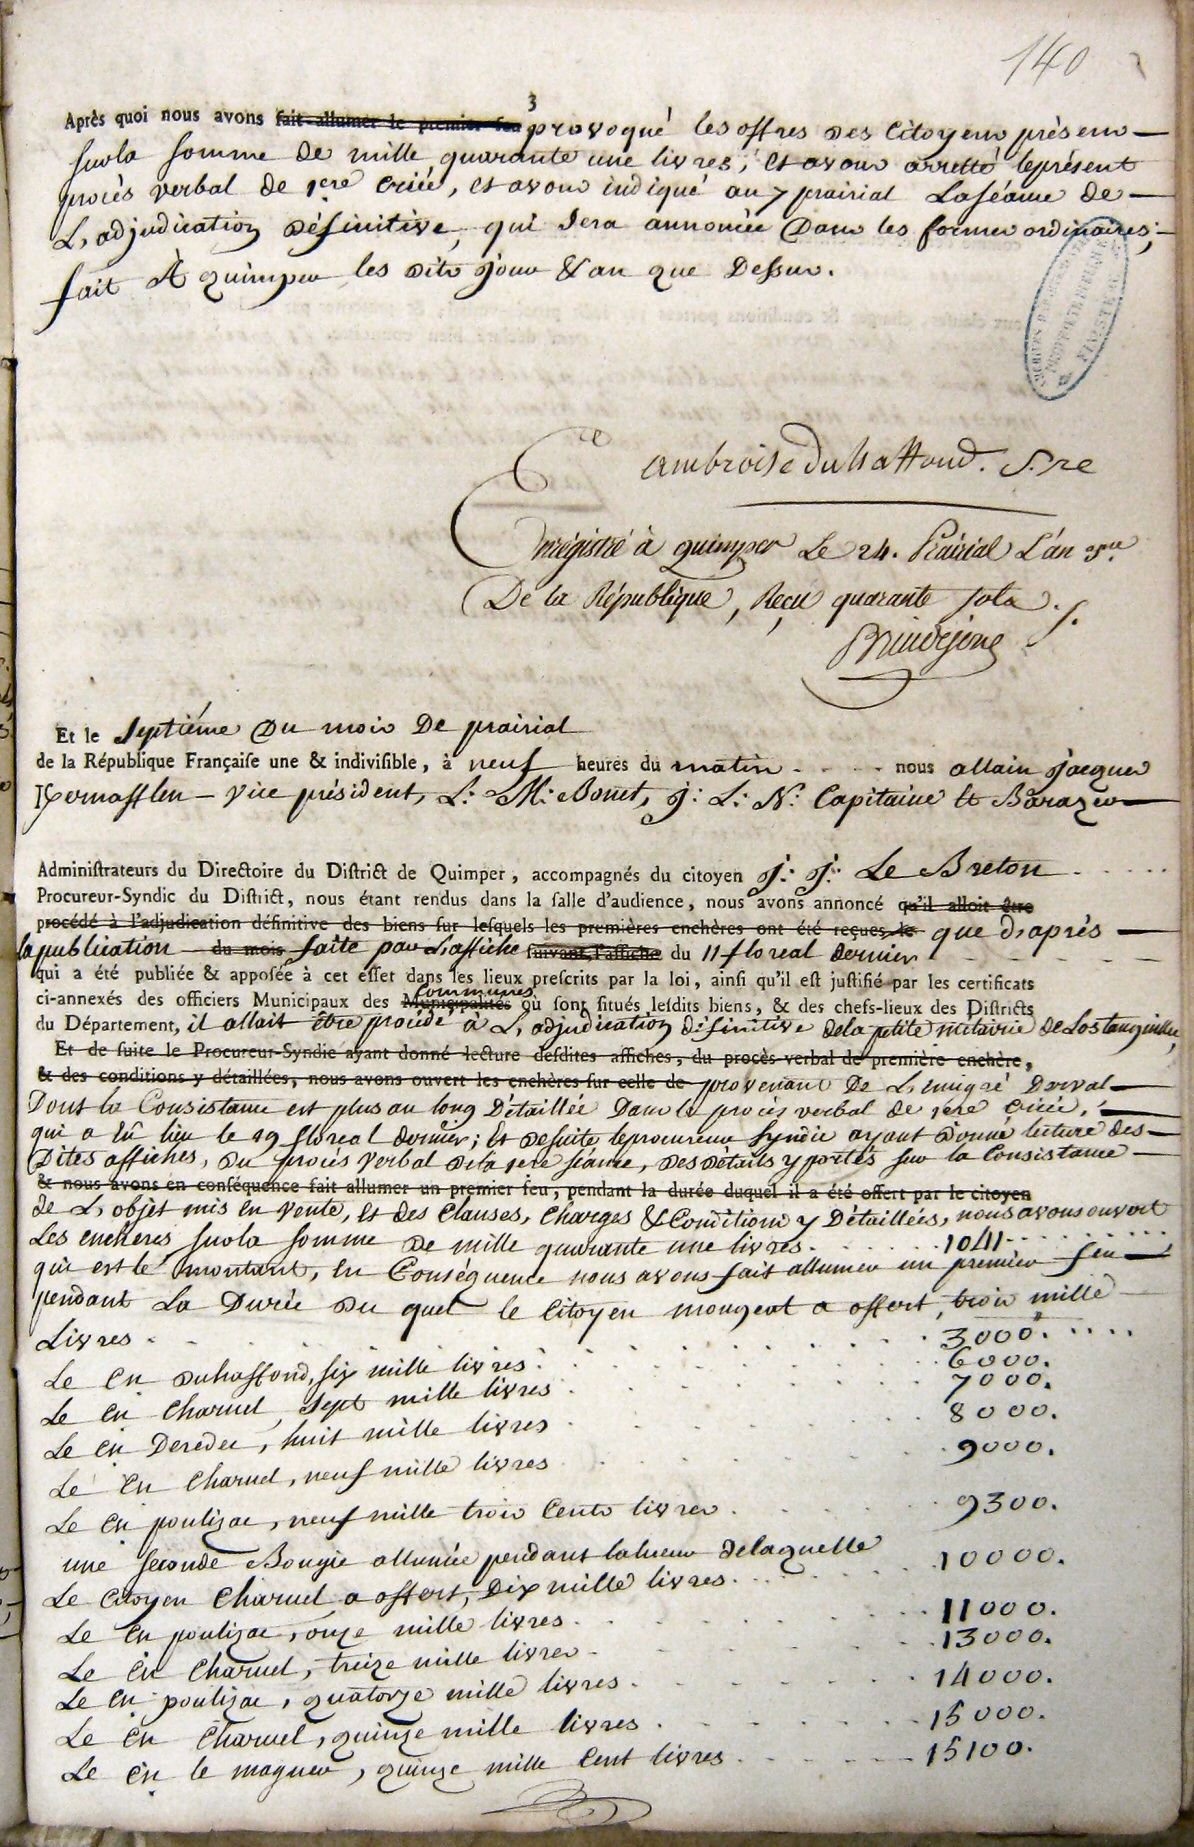 140
3
Après quoi nous avons fait allumer le premier feu provoqué les offres des Citoyens présens
sur la somme de mille quarante une livres, et avons arretté le présent
procès verbal de 1ere Criée, et avons indiqué au 7 prairial La séance de
L'adjudication définitive, qui sera annoncée Dans les formes ordinaires;
fait À quimper les dits Jour & an que Dessus.
ambroise du haffond. S.re
Enregistré à quimper Le 24. Prairial L'an 3me
De la République, Reçu quarante sols.
Et le Septiéme Du mois De prairial
de la République Françaiſe une & indiviſible, à neuf heures du matin nous allain Jacques
Kernafflen vice président, L: M: Bonet, J: L: N: Capitaine et Barazer
Adminiſtrateurs du Directoire du Diſtrict de Quimper, accompagnés du citoyen J: J: Le Breton
Procureur-Syndic du Diſtrict, nous étant rendus dans la ſalle d'audience, nous avons annoncé qu'il alloit être
procédé à l'adjudication définitive des biens ſur leſquels les premières enchères ont été reçues le que d'après
la publication du mois faite par L'affiche ſuivant l'affiche du 11 floreal dernier
qui a été publiée & appoſée à cet effet dans les lieux preſcrits par la loi, ainſi qu'il eſt juſtifié par les certificats
Communes
ci-annexés des officiers Municipaux des Municipalités où ſont ſitués leſdits biens, & des chefs-lieux des Diſtricts
du Département, il allait être procédé à L'adjudication définitive de la petite métairie de Lostanguillec,
Et de ſuite le Procureur-Syndic ayant donné lecture deſdites affiches, du procès-verbal de première enchère,
& des conditions y détaillées, nous avons ouvert les enchères ſur celle de provenant De L'émigré Derval
Dont la Consistance est plus au long Détaillée Dans le procès verbal de 1ere criée,
qui a eû lieu le 29 floreal dernier; et De suite le procureur Syndic ayant donné lecture des
Dites affiches, Du procès verbal de la 1ere séance, Des détails y portés sur la Consistance
& nous avons en conſéquence fait allumer un premier feu, pendant la durée duquel il a été offert par le citoyen
de L'objet mis en vente, et des Clauses, Charges & Conditions y Détaillées, nous avons ouvert
Les encheres sur la somme De mille quarante une livres 1041
qui est le montant, En Conséquence nous avons fait allumer un premier feu
pendant La Durée Du quel le Citoyen mougeat a offert, trois mille
Livres 3000.
Le Cn Duhaffond, six mille livres 6000.
Le Cn Charuel, Sept mille livres 7000.
Le Cn Deredec, huit mille livres 8000.
Le Cn Charuel, neuf mille livres 9000.
Le Cn poulizac, neuf mille trois Cents livres 9300.
une Seconde Bougie allumée pendant la lueur de laquelle
Le Citoyen Charuel a offert, Dix mille livres 10000.
Le Cn poulizac, onze mille livres 11000.
Le Cn Charuel, treize mille livres 13000.
Le Cn poulizac, quatorze mille livres 14000.
Le Cn Charuel, quinze mille livres 15000.
Le Cn le magueur, quinze mille Cent livres 15100.